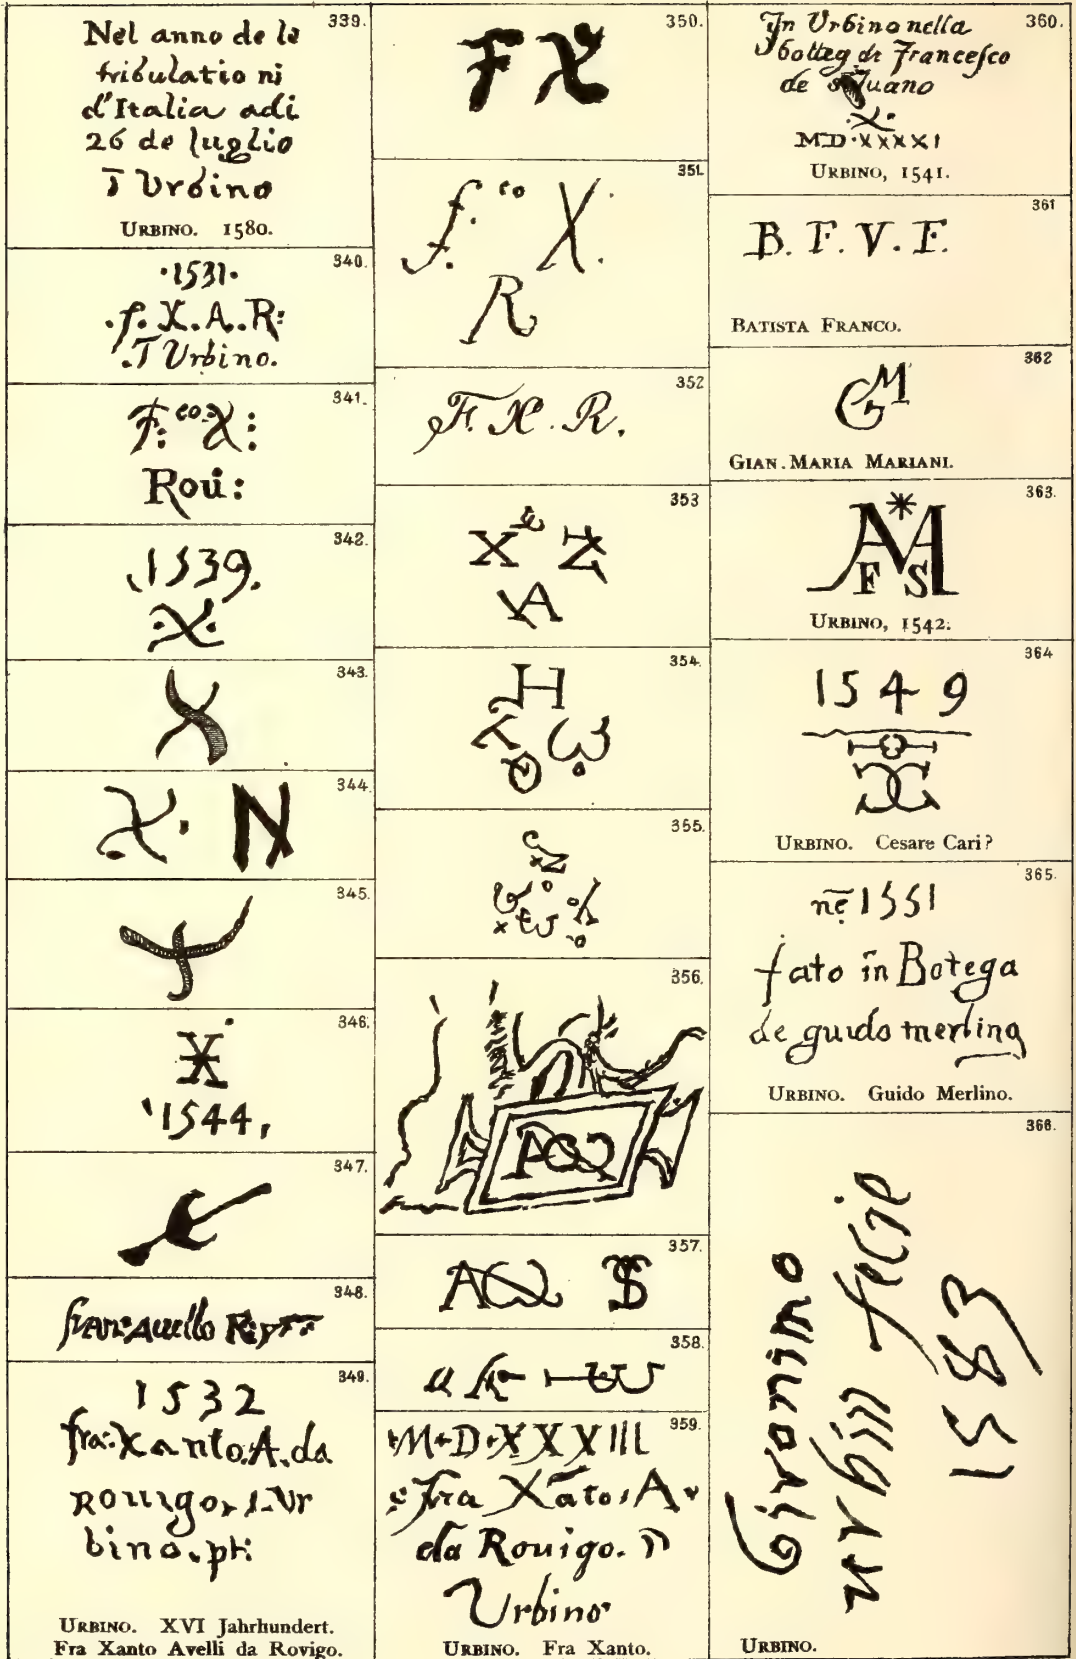 339.
Nel anno de le
tribulatio ni
d'Italia adi
26 de luglio
T Urbino
URBINO. 1580.
340.
·1531·
.f. X. A. R:
.T Urbino.
341.
F:co X:
Roui:
342.
.1539.
·X·
343.
X
344.
X. N
345.
346.
X
'1544,
347.
348.
349.
1532
fra: Xanto. A. da
Rouigo, I. Vr
bino. pt:
URBINO. XVI Jahrhundert.
Fra Xanto Avelli da Rovigo.
350.
F X
351.
f.co X.
R
352
F. X. R.
353
X Z
A
354.
H
355.
356.
357.
358.
359.
M·D·XXXIII
Fra Xãto, A.
da Rouigo. I
Urbino
URBINO. Fra Xanto.
360.
In Urbino nella
botteg di Francesco
de Siluano
·X·
MD·XXXXI
URBINO, 1541.
361
B. F. V. F.
BATISTA FRANCO.
362
GM
GIAN. MARIA MARIANI.
363.
F S
URBINO, 1542.
364
1549
URBINO. Cesare Cari?
365.
nẽ 1551
fato in Botega
de guido merlino
URBINO. Guido Merlino.
366.
Gironimo
urbin fecie
1583
URBINO.